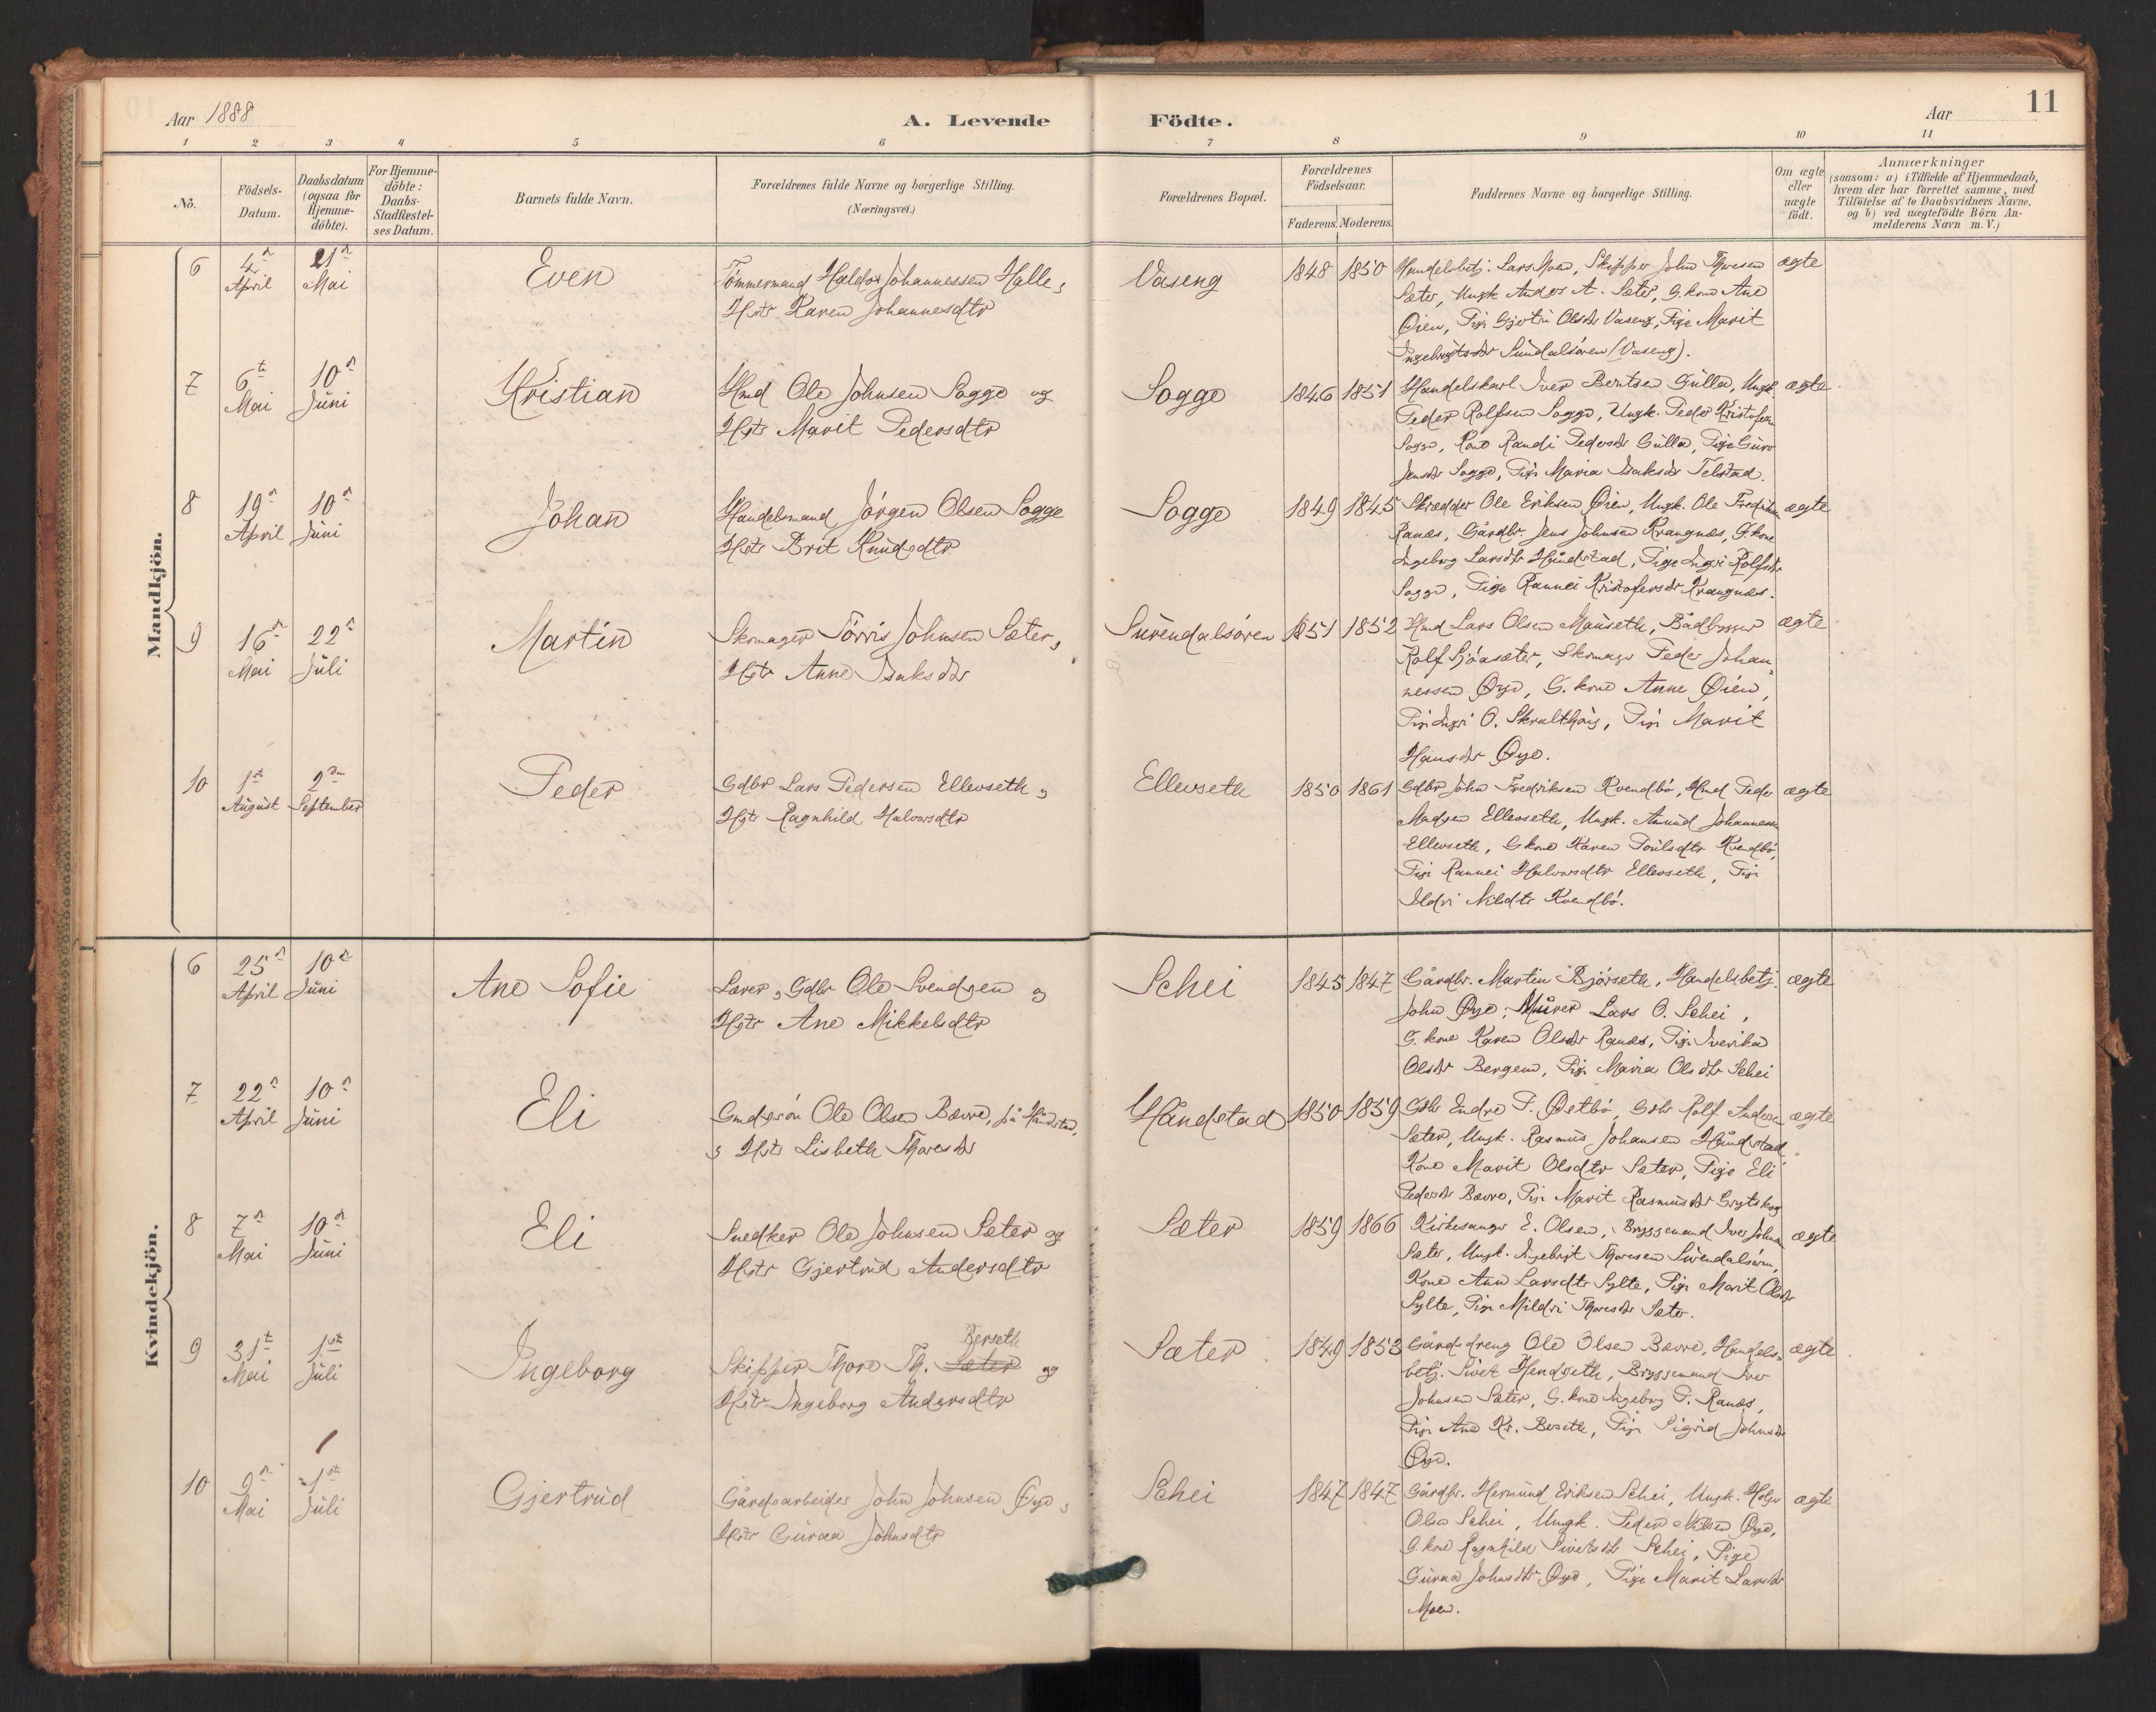 Aar 1888
A. Levende Födte.
Aar
11
1 2 3 4 5 6 7 8 9 10 11
No.
Födsels-Datum.
Daabsdatum (ogsaa for Hjemme-döbte).
For Hjemme-döbte: Daabs-Stadfæstel-ses Datum.
Barnets fulde Navn.
Forældrenes fulde Navne og borgerlige Stilling.
(Næringsvei.)
Forældrenes Bopæl.
Forældrenes Födselsaar.
Faderens. Moderens.
Faddernes Navne og borgerlige Stilling.
Om ægte eller uægte födt.
Anmærkninger
(saasom: a) i Tilfælde af Hjemmedaab,
hvem der har forrettet samme, med
Tilföielse af to Daabsvidners Navne,
og b) ved uægtefödte Börn An-
melderens Navn m. V.)
Mandkjön.
6 4de April 21de Mai Even
Tömmermand Haldor Johannessen Halle,
Hstr Karen Johannesdtr
Vaseng 1848 1850
Handelsbetj. Lars Moen, Skipper John Thoresen
Sæter, Ungk Anders A. Sæter, G.kone Ane
Øien, Pige Gjertru Olsdtr Vaseng, Pige Marit
Ingebrigtsdtr Surendalsören (Vaseng).
ægte
7 6te Mai 10de Juni Kristian
Hmd Ole Johnsen Sogge og
Hstr Marit Pedersdtr
Sogge 1846 1851
Handelskarl Iver Berntsen Gulla, Ungk.
Peder Rolfsen Sogge, Ungk. Peder Kristofersen
Sogge, Kone Randi Pedersdtr Gulla, Pige Guro
Jensdtr Sogge, Pige Maria Isaksdtr Telstad.
ægte
8 19de April 10de Juni Johan
Handelsmand Jörgen Olsen Sogge
Hstr Brit Knudsdtr
Sogge 1849 1845
Skrædder Ole Eriksen Øien, Ungk. Ole Fredriksen
Ranæs, Gårdbr. Jens Johnsen Krangnæs, G.kone
Ingeborg Larsdtr Håndstad, Pige Ingri Rolfsdtr
Sogge, Pige Rannei Kristofersdtr Krangnæs.
ægte
9 16de Mai 22de Juli Martin
Skomager Törris Johnsen Sæter,
Hstr Anne Isaksdtr
Surendalsören 1851 1852
Hmd Lars Olsen Mauseth, Bådbygger
Rolf Sjöasæter, Skomager Peder Johan-
nessen Øye, G. kone Anne Øien,
Pige Ingri O. Skralthaug, Pige Marit
Hansdtr Øye.
ægte
10 1ste August 2den September Peder
Gdbr Lars Pedersen Ellevseth,
Hstr Ragnhild Halvorsdtr
Ellevseth 1850 1861
Gdbr John Fredriksen Kvendbö, Hmd Peder
Madsen Ellevseth, Ungk. Amund Johannessen
Ellevseth, Gkone Karen Poulsdtr Kvendbö,
Pige Rannei Halvorsdtr Ellevseth, Pige
Ildri Nilsdtr Kvendbö.
ægte
Kvindekjön.
6 25de April 10de Juni Ane Sofie
Lærer, Gdbr Ole Svendsen og
Hstr Ane Mikkelsdtr
Schei 1845 1847
Gårdbr. Martin Björseth, Handelsbetj.
John Øye, Murer Lars O. Schei,
G. kone Karen Olsdtr Ranæs, Pige Iverika
Olsdtr Bergem, Pige Maria Olsdtr Schei
ægte
7 22de April 10de Juni Eli
Gmdssön Ole Olsen Bævre, på Håndstad,
Hstr Lisbeth Thoresdtr
Håndstad 1850 1859
Gdbr Endre P. Øetbö, Gdbr Rolf Andersen
Sæter, Ungk. Rasmus Johansen Håndstad
Kone Marit Olsdtr Sæter, Pige Eli
Pedersdtr Bævre, Pige Marit Rasmusdtr Grytskog
ægte
8 7de Mai 10de Juni Eli
Snedker Ole Johnsen Sæter og
Hstr Gjertrud Andersdtr
Sæter 1859 1866
Kirkesanger E. Olsen, Bryggemand Iver Johnsen
Sæter, Ungk. Ingebrigt Thoresen Surendalsören,
Kone Ann Larsdtr Sylte, Pige Marit Olsdtr
Sylte, Pige Mildri Thoresdtr Sæter.
ægte
9 31te Mai 1ste Juli Ingeborg
Berseth
Skipper Thore Th. Sæter og
Hstr Ingeborg Andersdtr
Sæter 1849 1853
Gårddreng Ole Olsen Bævre, Handels-
betj. Sivert Hendseth, Bryggemand Iver
Johnsen Sæter, G. kone Ingeborg P. Ranæs,
Pige Ane Kr. Berseth, Pige Sigrid Johnsdtr
Øye.
ægte
10 9de Mai 1ste Juli Gjertrud
Gårdsarbeider John Johnsen Øye,
Hstr Guraa Johnsdtr
Schei 1847 1847
Gårdbr. Hermund Eriksen Schei, Ungk. Holger
Olsen Schei, Ungk. Peder Nilsen Øye,
G. kone Ragnhild Sivertsdtr Schei, Pige
Guraa Johnsdtr Øye, Pige Marit Larsdtr
Moen.
ægte